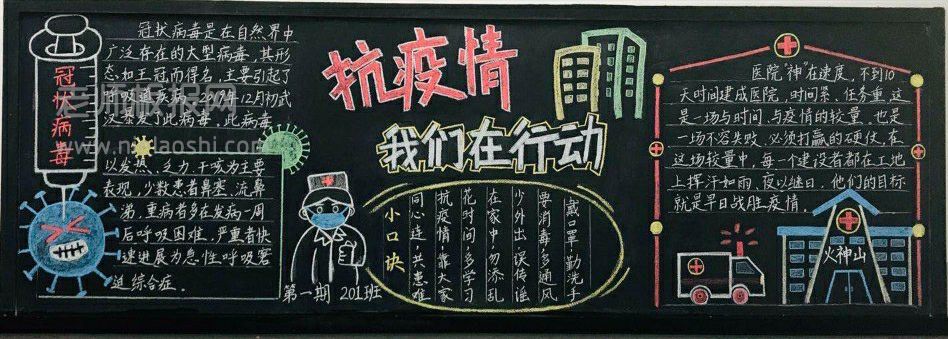 冠状病毒
冠状病毒是在自然界中
广泛存在的大型病毒,其形
态如王冠而得名,主要引起了
呼吸道疾病,2019年12月初武
汉暴发了此病毒,此病毒
以发热、乏力、干咳为主要
表现,少数患者鼻塞、流鼻
涕,重病者多在发病一周
后呼吸困难,严重者快
速进展为急性呼吸窘
迫综合症。
抗疫情
我们在行动
戴口罩,勤洗手
要消毒,多通风
少外出,误传谣
在家中,勿添乱
花时间,多学习
抗疫情,靠大家
同心连,共患难
小口诀
第一期 201班
医院“神”在速度,不到10
天时间建成医院,时间紧、任务重,这
是一场与时间、与疫情的较量,也是
一场不容失败、必须打赢的硬仗,在
这场较量中,每一个建设者都在工地
上挥汗如雨、夜以继日,他们的目标
就是早日战胜疫情。
火神山